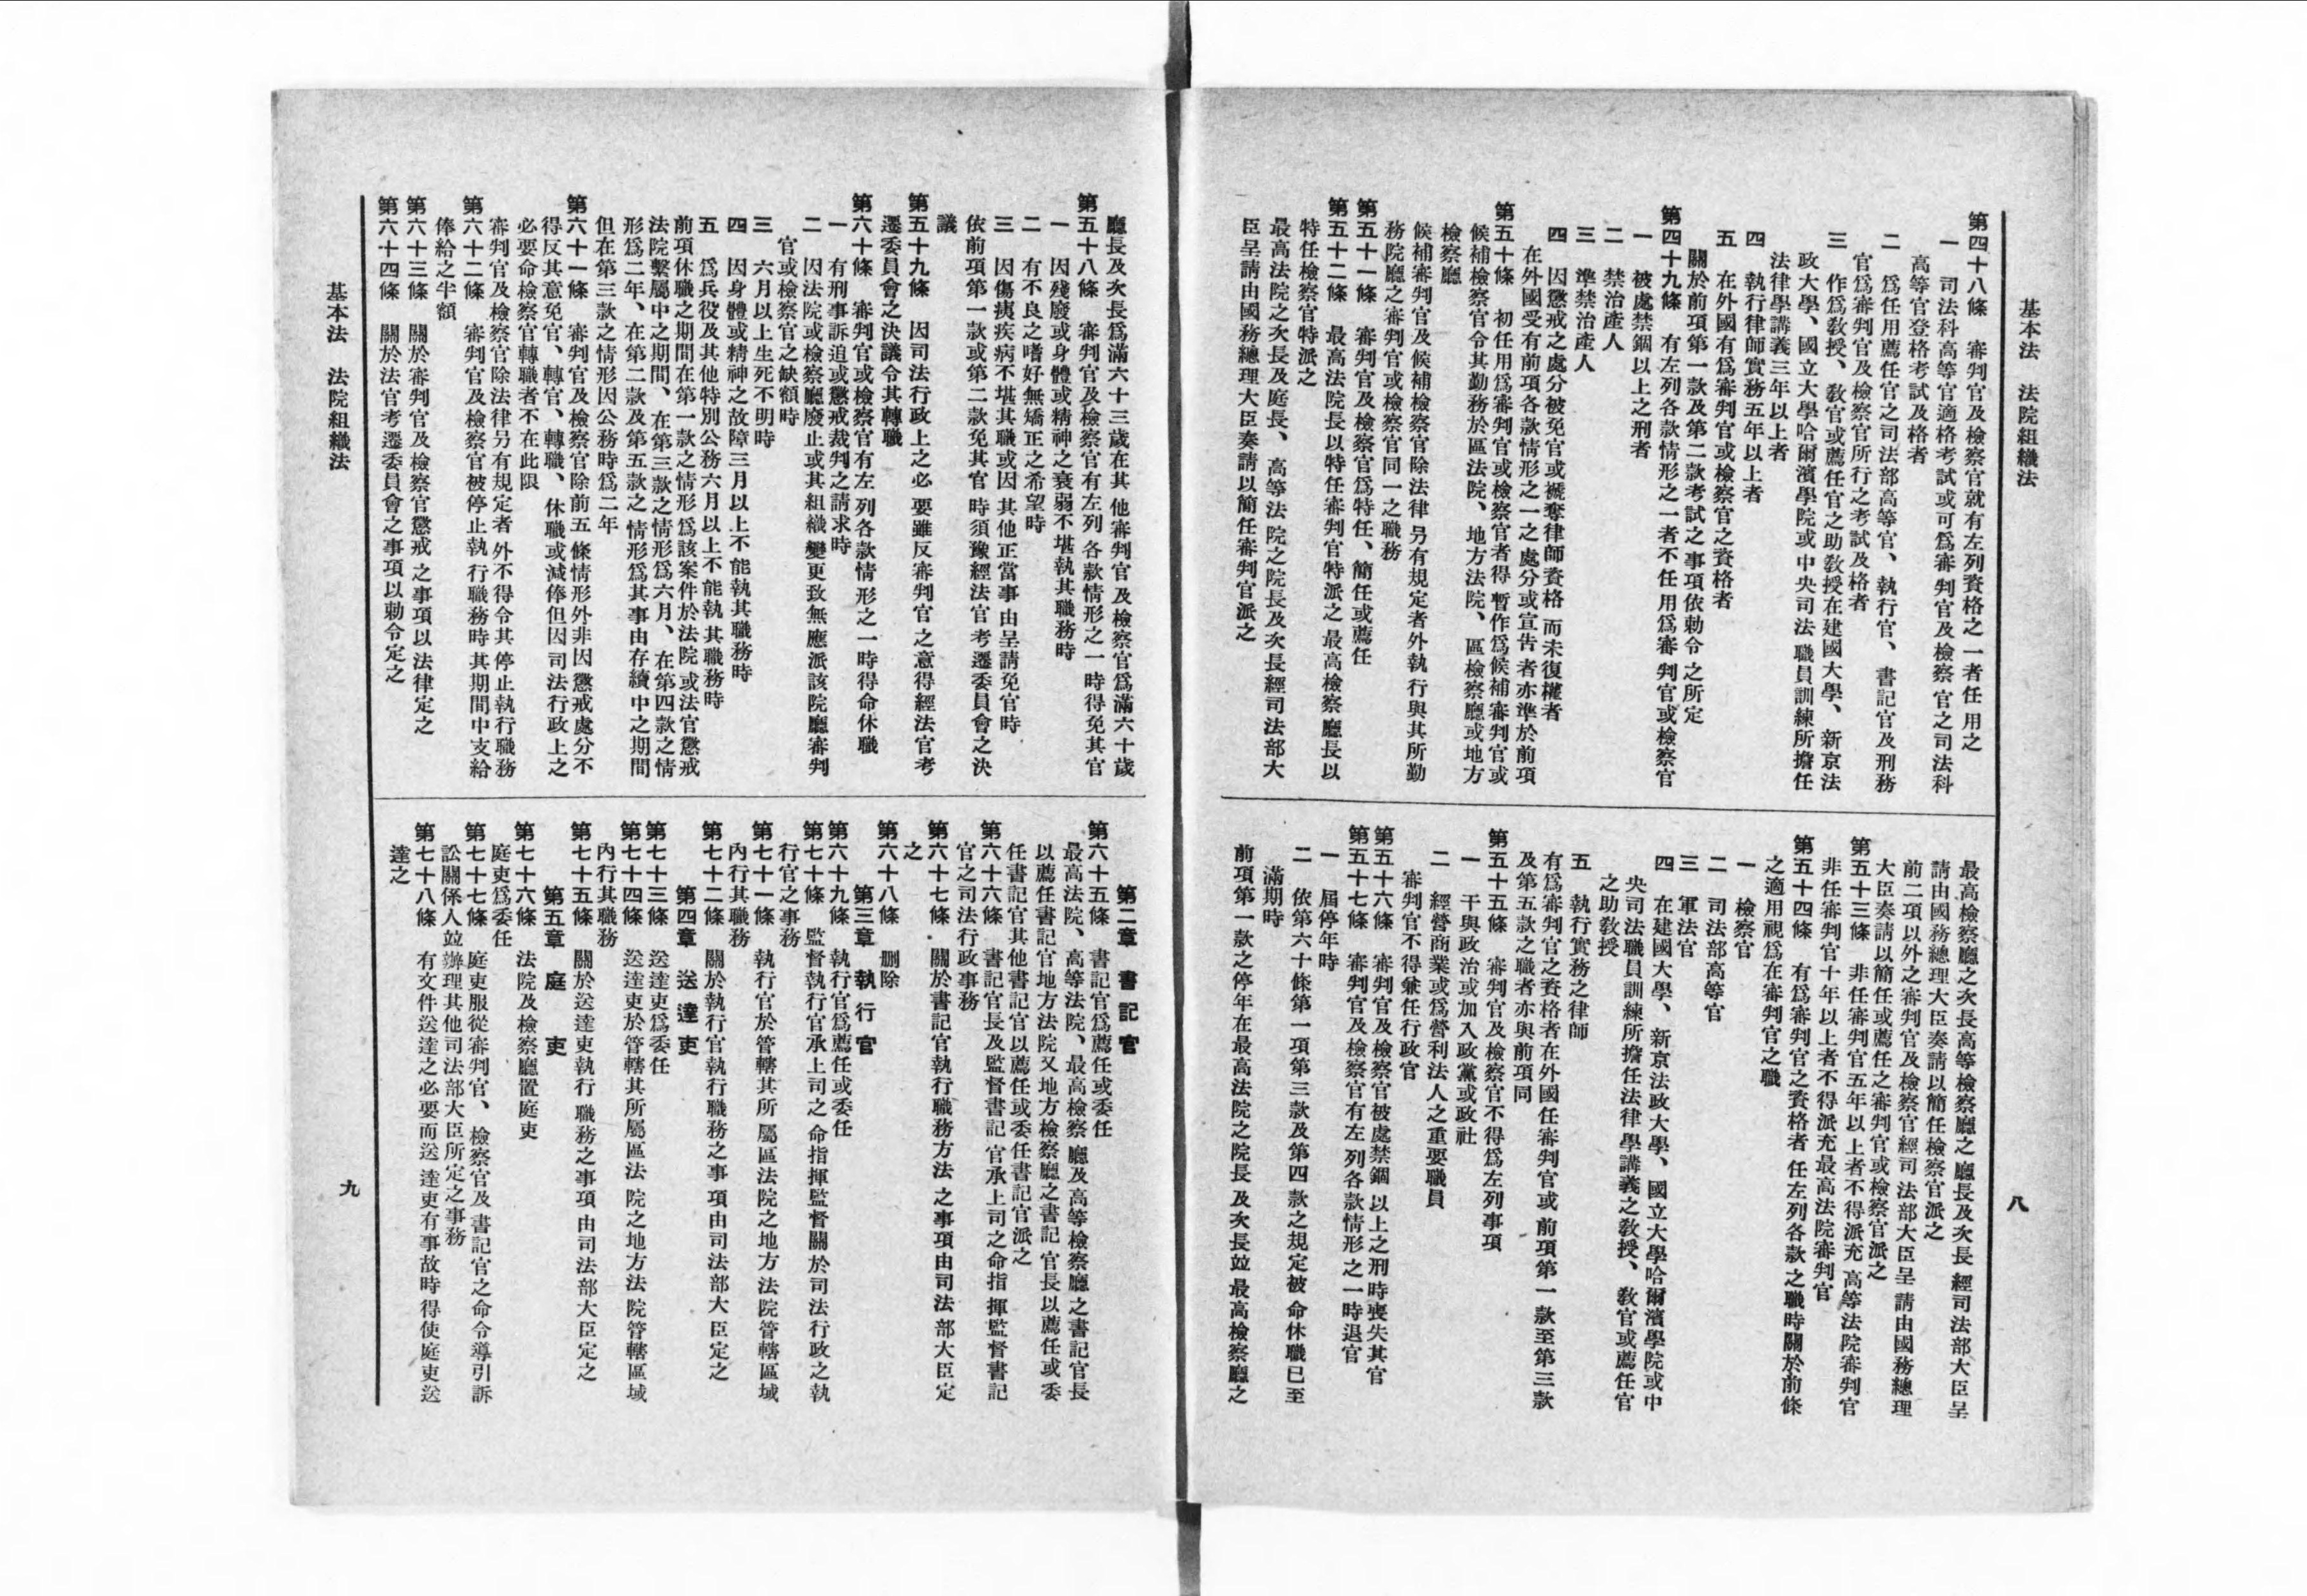 基本法　法院組織法
八
第四十八條　審判官及檢察官就有左列資格之一者任用之
一　司法科高等官適格考試或可爲審判官及檢察官之司法科
高等官登格考試及格者
二　爲任用薦任官之司法部高等官、執行官、書記官及刑務
官爲審判官及檢察官所行之考試及格者
三　作爲敎授、敎官或薦任官之助敎授在建國大學、新京法
政大學、國立大學哈爾濱學院或中央司法職員訓練所擔任
法律學講義三年以上者
四　執行律師實務五年以上者
五　在外國有爲審判官或檢察官之資格者
關於前項第一款及第二款考試之事項依勅令之所定
第四十九條　有左列各款情形之一者不任用爲審判官或檢察官
一　被處禁錮以上之刑者
二　禁治產人
三　準禁治產人
四　因懲戒之處分被免官或褫奪律師資格而未復權者
在外國受有前項各款情形之一之處分或宣吿者亦準於前項
第五十條　初任用爲審判官或檢察官者得暫作爲候補審判官或
候補檢察官令其勤務於區法院、地方法院、區檢察廳或地方
檢察廳
候補審判官及候補檢察官除法律另有規定者外執行與其所勤
務院廳之審判官或檢察官同一之職務
第五十一條　審判官及檢察官爲特任、簡任或薦任
第五十二條　最高法院長以特任審判官特派之最高檢察廳長以
特任檢察官特派之
最高法院之次長及庭長、高等法院之院長及次長經司法部大
臣呈請由國務總理大臣奏請以簡任審判官派之
最高檢察廳之次長高等檢察廳之廳長及次長經司法部大臣呈
請由國務總理大臣奏請以簡任檢察官派之
前二項以外之審判官及檢察官經司法部大臣呈請由國務總理
大臣奏請以簡任或薦任之審判官或檢察官派之
第五十三條　非任審判官五年以上者不得派充高等法院審判官
非任審判官十年以上者不得派充最高法院審判官
第五十四條　有爲審判官之資格者任左列各款之職時關於前條
之適用視爲在審判官之職
一　檢察官
二　司法部高等官
三　軍法官
四　在建國大學、新京法政大學、國立大學哈爾濱學院或中
央司法職員訓練所擔任法律學講義之敎授、敎官或薦任官
之助敎授
五　執行實務之律師
有爲審判官之資格者在外國任審判官或前項第一款至第三款
及第五款之職者亦與前項同
第五十五條　審判官及檢察官不得爲左列事項
一　干與政治或加入政黨或政社
二　經營商業或爲營利法人之重要職員
審判官不得兼任行政官
第五十六條　審判官及檢察官被處禁錮以上之刑時喪失其官
第五十七條　審判官及檢察官有左列各款情形之一時退官
一　屆停年時
二　依第六十條第一項第三款及第四款之規定被命休職已至
滿期時
前項第一款之停年在最高法院之院長及次長竝最高檢察廳之
廳長及次長爲滿六十三歲在其他審判官及檢察官爲滿六十歲
第五十八條　審判官及檢察官有左列各款情形之一時得免其官
一　因殘廢或身體或精神之衰弱不堪執其職務時
二　有不良之嗜好無矯正之希望時
三　因傷痍疾病不堪其職或因其他正當事由呈請免官時
依前項第一款或第二款免其官時須豫經法官考遷委員會之決
議
第五十九條　因司法行政上之必要雖反審判官之意得經法官考
遷委員會之決議令其轉職
第六十條　審判官或檢察官有左列各款情形之一時得命休職
一　有刑事訴追或懲戒裁判之請求時
二　因法院或檢察廳廢止或其組織變更致無應派該院廳審判
官或檢察官之缺額時
三　六月以上生死不明時
四　因身體或精神之故障三月以上不能執其職務時
五　爲兵役及其他特別公務六月以上不能執其職務時
前項休職之期間在第一款之情形爲該案件於法院或法官懲戒
法院繫屬中之期間、在第三款之情形爲六月、在第四款之情
形爲二年、在第二款及第五款之情形爲其事由存續中之期間
但在第三款之情形因公務時爲二年
第六十一條　審判官及檢察官除前五條情形外非因懲戒處分不
得反其意免官、轉官、轉職、休職或減俸但因司法行政上之
必要命檢察官轉職者不在此限
審判官及檢察官除法律另有規定者外不得令其停止執行職務
第六十二條　審判官及檢察官被停止執行職務時其期間中支給
俸給之半額
第六十三條　關於審判官及檢察官懲戒之事項以法律定之
第六十四條　關於法官考遷委員會之事項以勅令定之
第二章　書記官
第六十五條　書記官爲薦任或委任
最高法院、高等法院、最高檢察廳及高等檢察廳之書記官長
以薦任書記官地方法院又地方檢察廳之書記官長以薦任或委
任書記官其他書記官以薦任或委任書記官派之
第六十六條　書記官長及監督書記官承上司之命指揮監督書記
官之司法行政事務
第六十七條　關於書記官執行職務方法之事項由司法部大臣定
之
第六十八條　刪除
第三章　執行官
第六十九條　執行官爲薦任或委任
第七十條　監督執行官承上司之命指揮監督關於司法行政之執
行官之事務
第七十一條　執行官於管轄其所屬區法院之地方法院管轄區域
內行其職務
第七十二條　關於執行官執行職務之事項由司法部大臣定之
第四章　送達吏
第七十三條　送達吏爲委任
第七十四條　送達吏於管轄其所屬區法院之地方法院管轄區域
內行其職務
第七十五條　關於送達吏執行職務之事項由司法部大臣定之
第五章　庭吏
第七十六條　法院及檢察廳置庭吏
庭吏爲委任
第七十七條　庭吏服從審判官、檢察官及書記官之命令導引訴
訟關係人竝辦理其他司法部大臣所定之事務
第七十八條　有文件送達之必要而送達吏有事故時得使庭吏送
達之
基本法　法院組織法
九